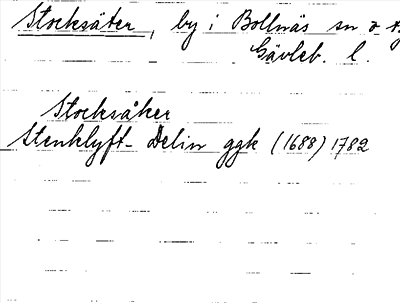 Stocksäter, by i Bollnäs sn o
Gävleb. l.
Stocksåker
Stenklyft- Delin ggk (1688) 1782